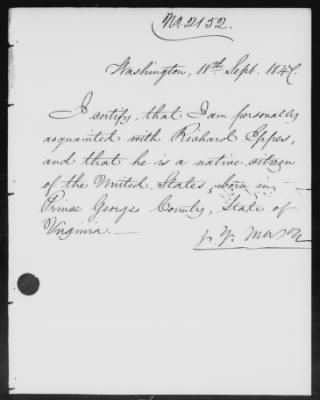 No. 2152.
Washington, 18th Sept. 1847.
I certify, that I am personally
acquainted with Richard Eppes,
and that he is a native citizen
of the United States, born in
Prince George County, State of
Virginia.—
J. Y. Mason